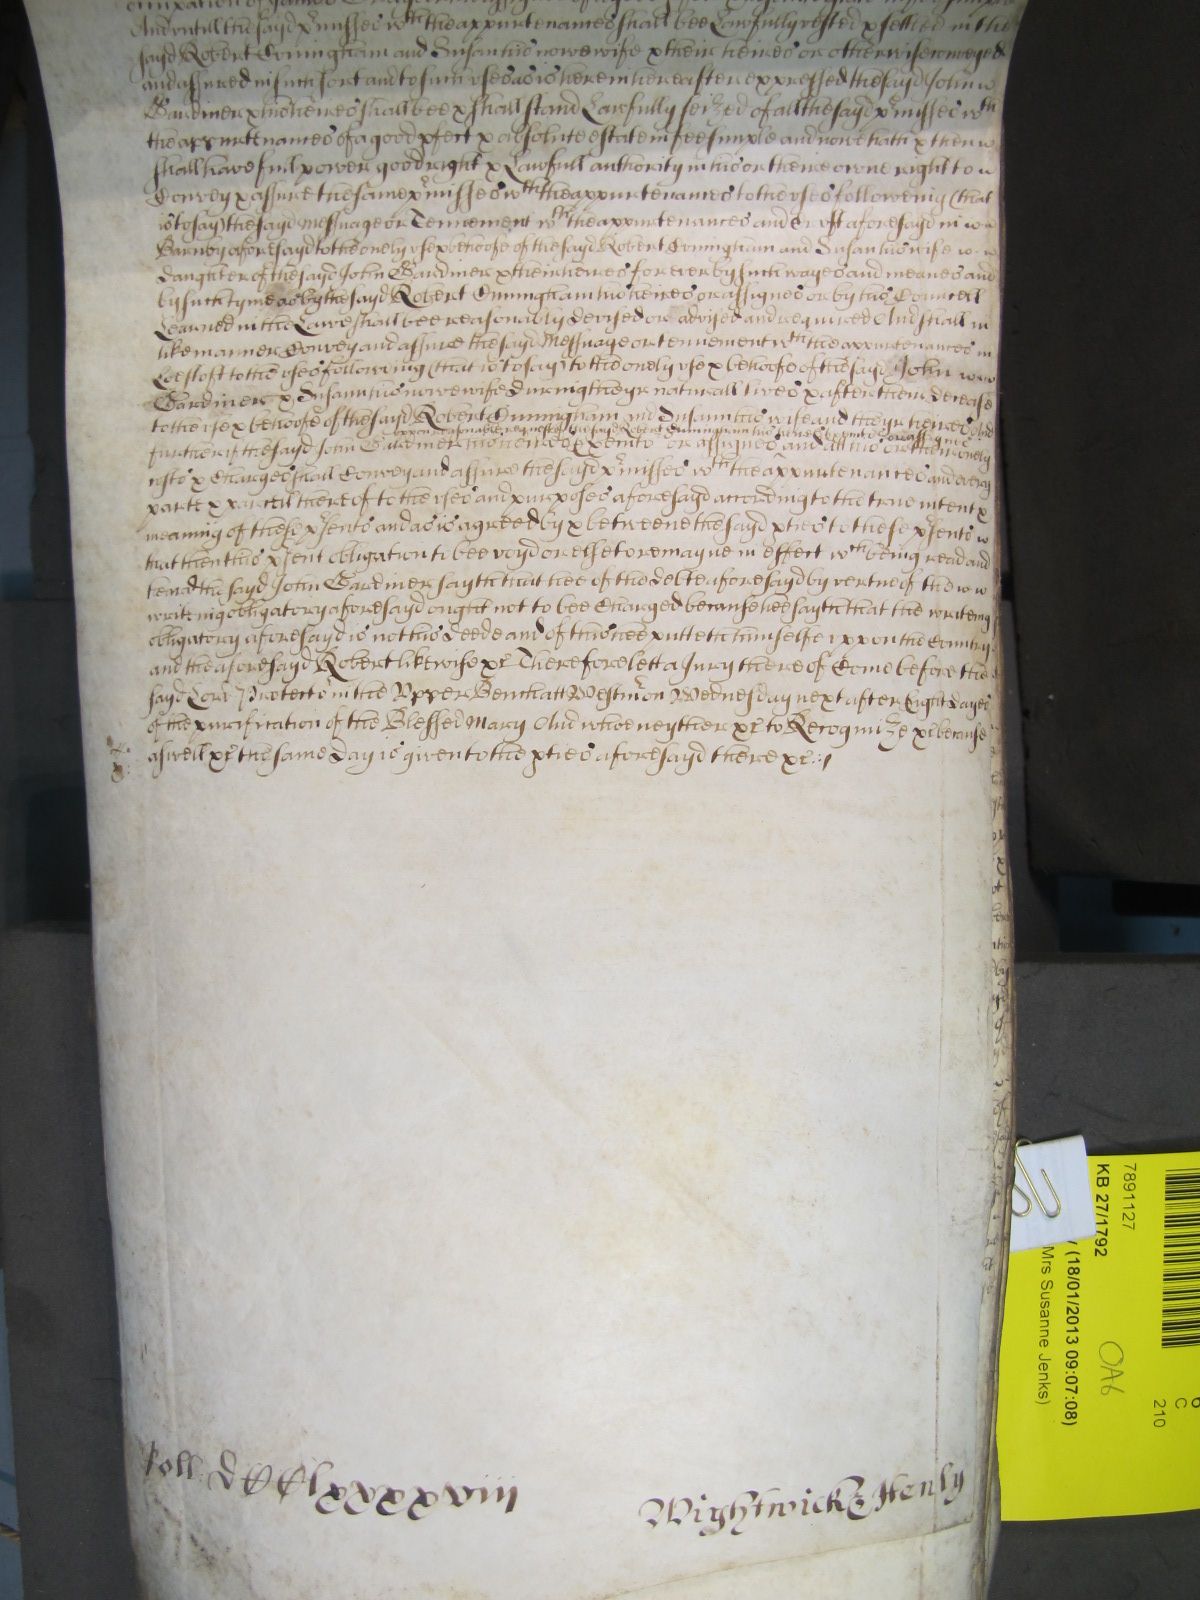 And untill the sayd p'misses wth the appurtenances shall bee Lawfully vested & setled in the
sayd Robert Cuningham and Susan his nowe wife & their heires or otherwise conveyed
and assured in such sort and to such uses as is herein hereafter expressed the sayd John
Gardiner & his heires shall bee & shall stand Lawfully seized of all the sayd p'misses wth
the appurtenances of a good pfect & absolute estate in fee simple and nowe hath & then
shall have full power good right & Lawfull authority in his or their owne right to
Convey & assure the same p'misses wth the appurtenances to the uses followeing (that
is to say) the sayd Messuage or Tennement wth the appurtenances and Croft aforesayd in
Barnby aforesayd to the onely use & behoofe of the sayd Robert Cuningham and Susan his wife
daughter of the sayd John Gardiner & their heires for ever by such wayes and meanes and
by such tyme as by the sayd Robert Cuningham his heires or assignes or by his Councell
Learned in the Lawe shall bee reasonably devised or advised and required And shall in
like manner Convey and assure the sayd Messuage or tennement wth the appurtenances in
to the uses following (that is to say) to the onely use & behoofe of the sayd John
Gardiner & Susan his nowe wife during theyr naturall lives & after their decease
to the use & behoofe of the sayd Robert Cuningham and Susan his wife and theyr heires And
upon reasonable request of the sayd Robert Cuningham his heires Execut's or assignes
further if the sayd John Gardiner his heires Execut's or assignes and att his or their onely
costs & Charges shall Convey and assure the sayd p'misses wth the appurtenances and every
parte & parcell thereof to the uses and purposes aforesayd according to the true intent &
meaning of these p'sents and as is agreed by & betweene the sayd pties to these p'sents
that then this p'sent obligation to bee voyd or else to remayne in effect wch being read and
heard the sayd John Gardiner sayth that hee of the debte aforesayd by vertue of the
writeing obligatory aforesayd ought not to bee Charged because hee sayth that the writeing
obligatory aforesayd is not his deede and of this hee putteth himselfe uppon the Country
and the aforesayd Robert likewise &c Therefore lett a Jury thereof Come before the
sayd Lord Protector in the Upper Bench att Westm'on Wednesday next after Eight dayes
of the purification of the Blessed Mary And who neyther &c to Recognize &c because
aswell &c the same day is given to the pties aforesayd there &c
Roll DCClxxxxviii
Wightwick & Henly
7891127
KB 27/1792
(18/01/2013 09:07:08)
Mrs Susanne Jenks)
OA6
6
C
210